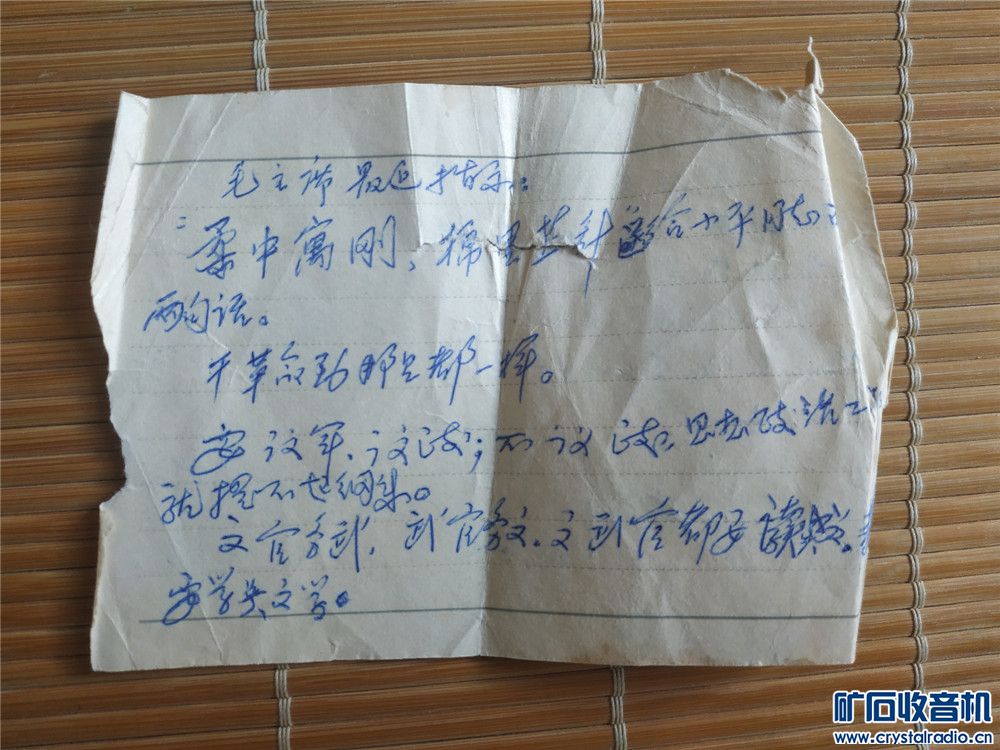 毛主席最近指示：
“柔中寓刚，棉里藏针送给小平同志
两句话。
干革命到那里都一样。
要议军，议政；不议政，思想政治工
就提不起纲来。
文官务武，武官务文，文武官都要读点
要学点文学。
矿石收音机
www.crystalradio.cn